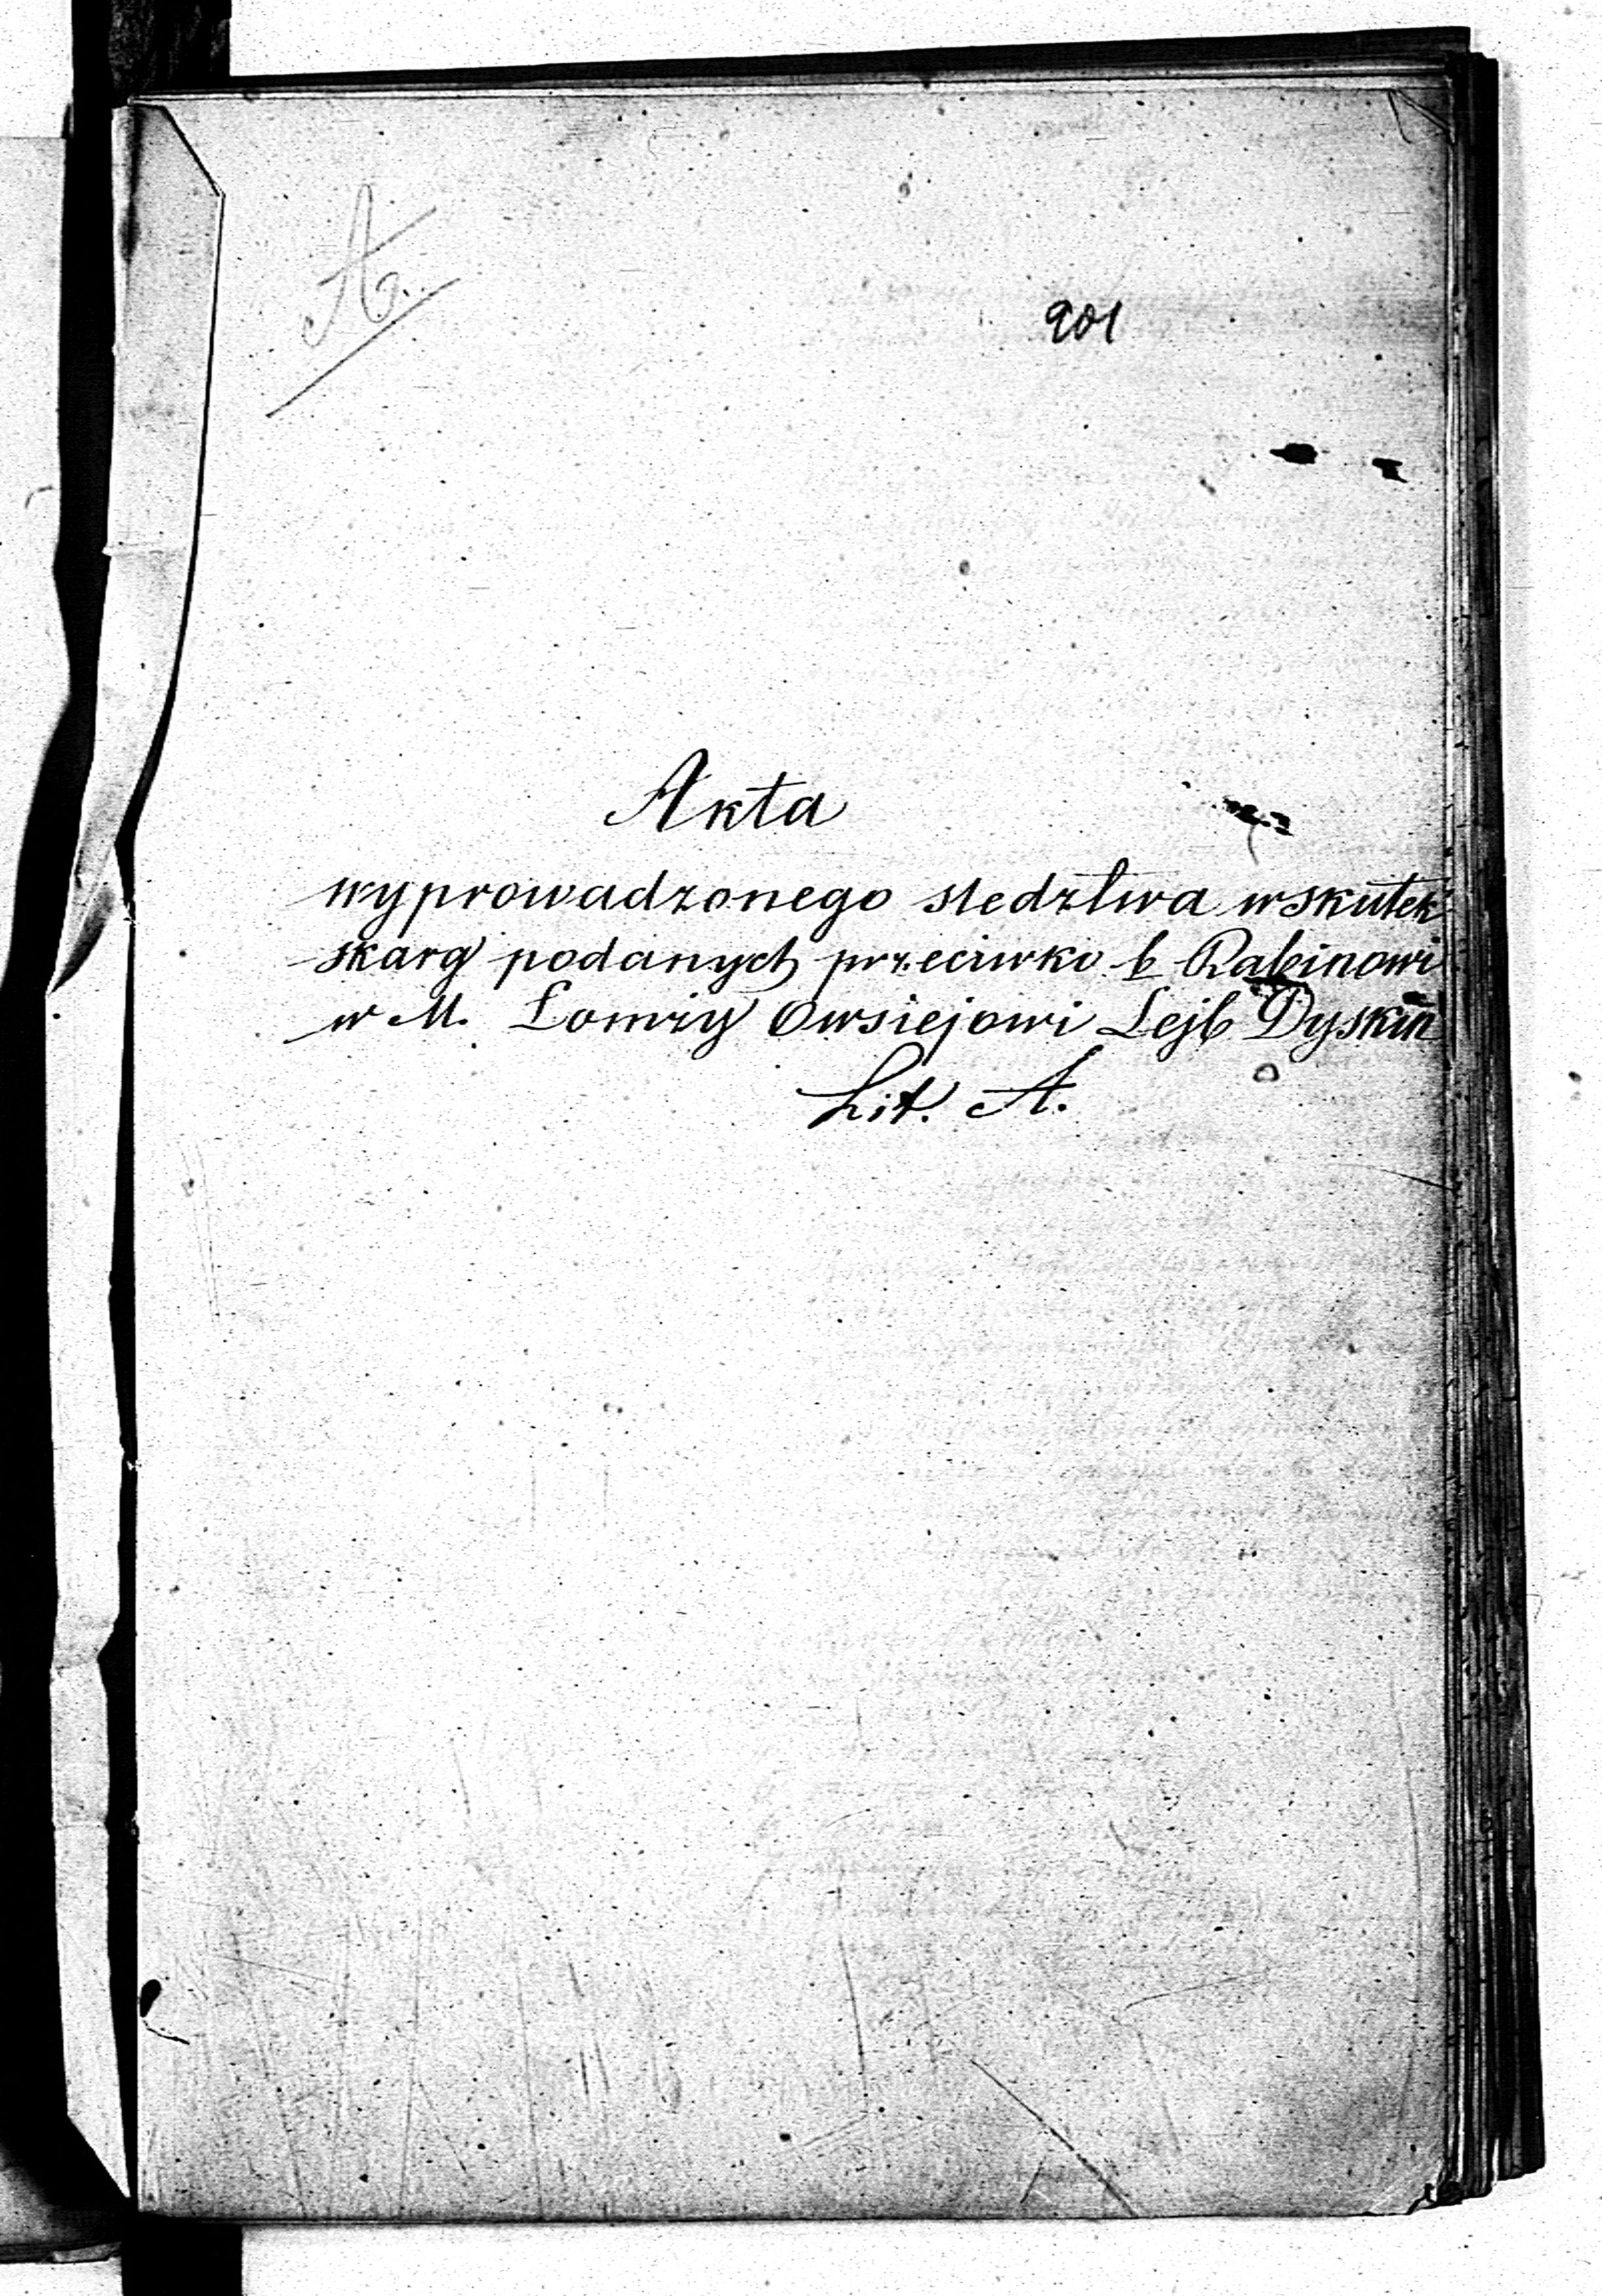 A.
201
Akta
wyprowadzonego sledztwa wskutek
skarg podanych przeciwko b Rabinowi
w M. Łomży Owsiejowi Lejb Dyskin
Lit. A.